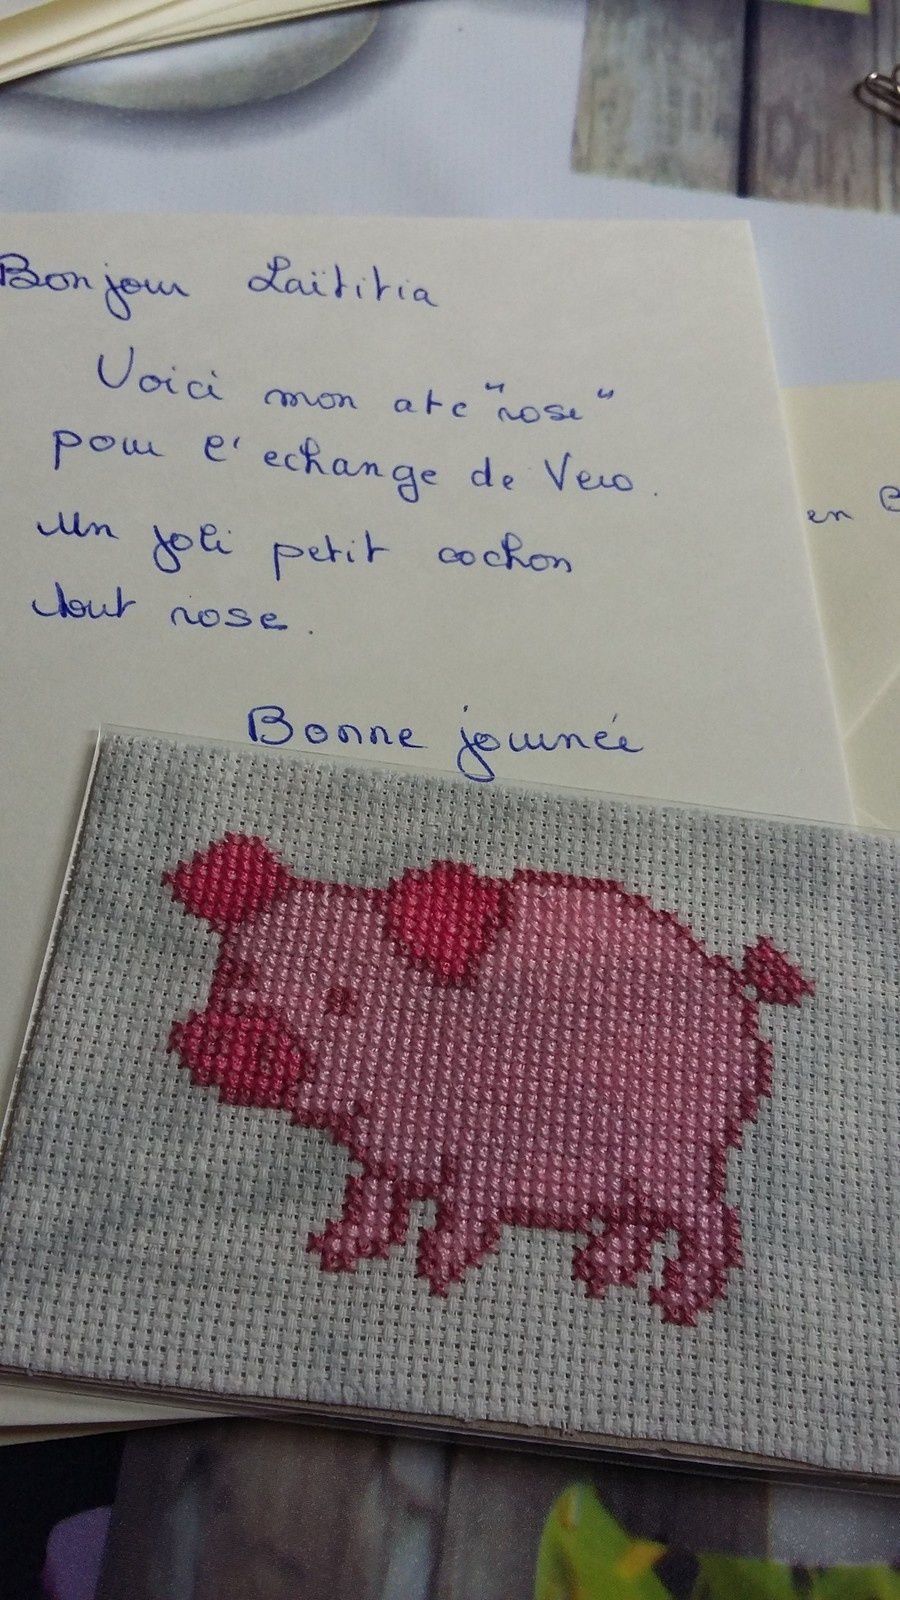 Bonjour Laïtitia
Voici mon atc "rose"
pour l'echange de Vero.
en
Un joli petit cochon
tout rose.
Bonne journée